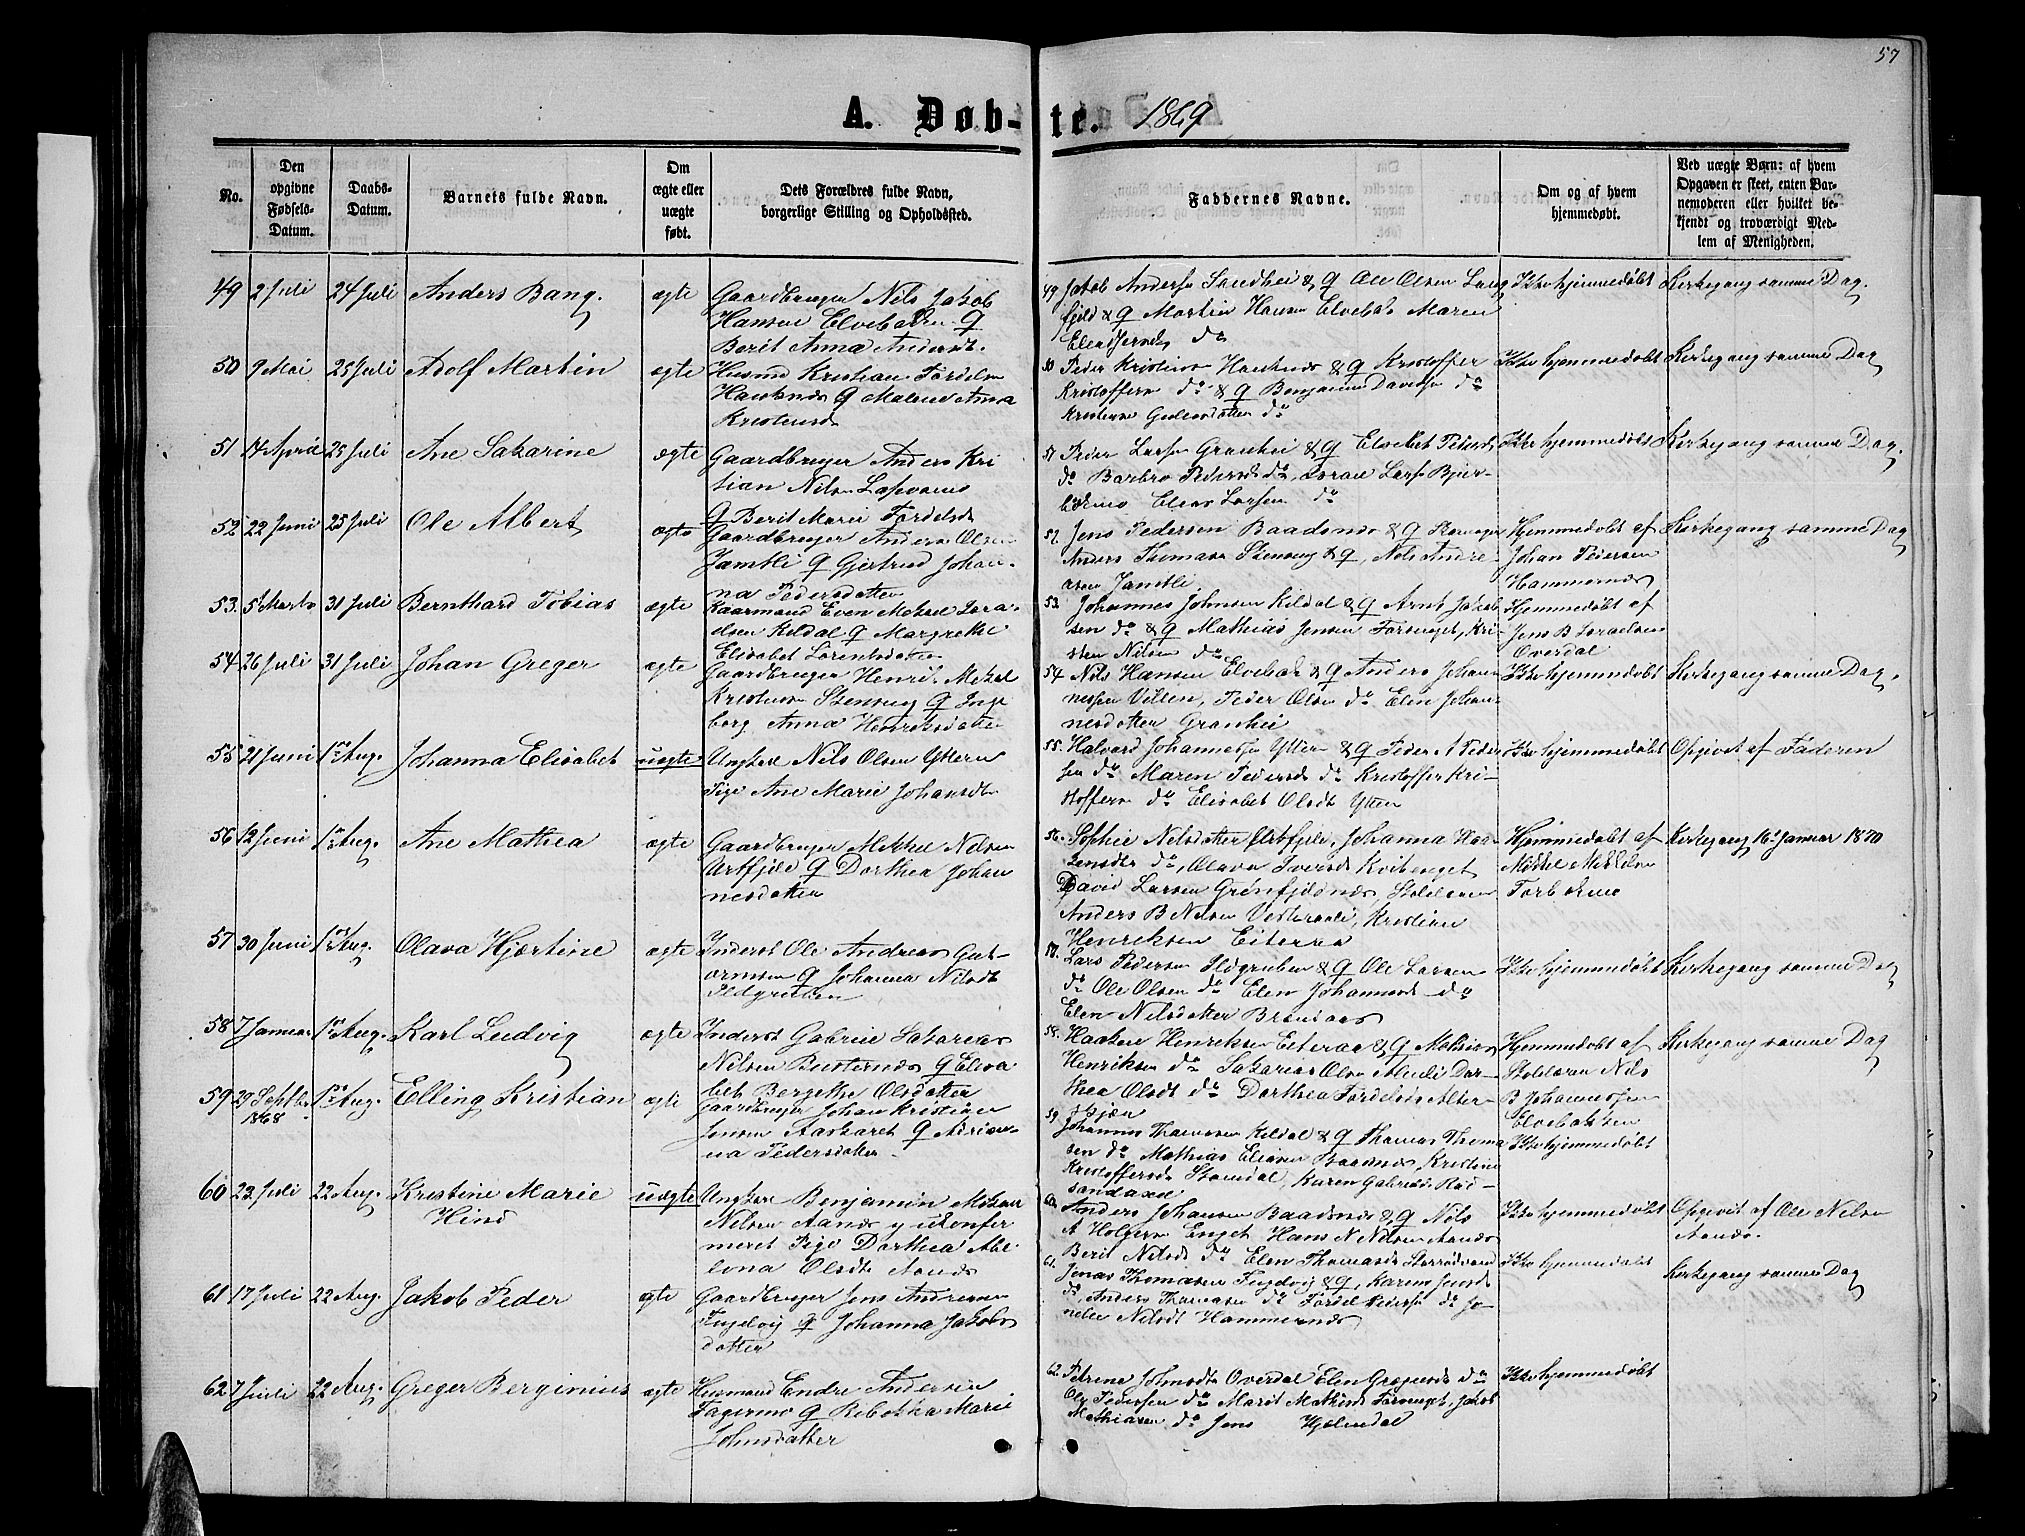 57
A. Døb-te. 1869
No.
Den opgivne Fødsels-Datum.
Daabs-Datum.
Barnets fulde Navn.
Om ægte eller uægte født.
Dets Forældres fulde Navn, borgerlige Stilling og Opholdssted.
Faddernes Navne.
Om og af hvem hjemmedøbt.
Ved uægte Børn: af hvem Opgaven er skeet, enten Barnemoderen eller hvilket bekjendt og troværdigt Medlem af Menigheden.
49 2 Juli 24 Juli Anders Bang. ægte Gaardbruger Nils Jakob
Hansen Elvebakken &
Berit Anna Andersdt.
49 Jakob Anders. Sandhei & Q Ole Olsen Lang
fjeld & Q Martin Hansen Elvebak Maren
do
Ikke hjemmedøbt Kirkegang samme Dag.
50 9 Mai 25 Juli Adolf Martin ægte Husmd Kristian Fordelsen
Hauknæs Q Malene Anna
Kristensd
50 Peder Kristensen Hauknes & Q Kristoffer
Kristoffersn do & Q Benjamin Davidsn do
Kristense Gulensdatter do
Ikke hjemmedøbt Kirkegang samme Dag
51 14 April 25 Juli Ane Sakarine ægte Gaardbruger Anders Kri
stian Nilsen
Q Berit Marie Fordelsd
51 Peder Larsn Granhei & Q Elsebet Pedersd
do Barbro Pedersd do, Lars
Elias Larsen do
Ikke hjemmedøbt Kirkegang samme Dag.
52 22 Juni 25 Juli Ole Albert ægte Gaardbruger Anders Olsen
Jamtli Q Gjertrud Johan-
na Pedersdatter
52. Jens Pedersen Baadsnes & Q
Anders Thomasn Stensng & Q, Nils Andre-
asen Jamtli
Hjemmedøbt af
Johan Pedersen
Hammernæs
Kirkegang samme Dag
53. 5 Marts 31 Juli Bernthard Tobias ægte Kaarmand Even Mekal Isra-
elsen Kildal Q Margrethe
Elisabet Lorentsdatter
53. Johannes Johnsen Kildal & Q Arnt Jakob
sen do & Q Mathias Jensen Forsenget, Kri-
sten Nilsen do
Hjemmedøbt af
Jens B Israelsen
Overdal
54 26 Juli 31 Juli Johan Greger ægte Gaardbruger Henrik Mekal
Kristensen Stensng Q Inge
borg Anna Henriksdatter
54 Nils Hansen Elvebak & Q Anders Johan-
nessen Villen, Peder Olsn do Elen Johan-
nesdatter Granhei
Ikke hjemmedøbt Kirkegang samme Dag.
55 21 Juni 1ste Aug. Johanna Elisabet uægte Ungkarl Nils Olsen Ytteren
Pige Ane Marie Johansdt
55. Halvard Johannesn Ytter & Q Peder A Peder
sen do Maren Pedersd do Kristoffer Kri-
stoffersn do Elisabet Olsdt Ytter
Ikke hjemmedøbt Opgivet af Faderen
56 12 Juni 1ste Aug. Ane Mathea ægte Gaardbruger Mikkel Nilsen
Urtfjeld Q Dorthea Johan
nesdatter
56. Sophie Nilsdatter Urtfjeld, Johanna Haa-
kensdtr do, Olava Iversd Kvitenget
David Larsen Grønfjeldnæs, Skolelærer
Anders B Nilsen Vesterali, Kristian
Henriksen Eiteraa
Hjemmedøbt af
Mikkel Mikkelsn
Kirkegang 16d Januar 1870
57 30 Juni 1ste Aug. Olava Hjertine ægte Inderst Ole Andreas Gut-
ormsen Q Johanna Nilsdt
Ildgruben
57. Lars Pedersen Ildgruben & Q Ole Larsen
do Ole Olsen do Elen Johannesd do
Elen Nilsdatter
Ikke hjemmedøbt Kirkegang samme Dag
58 7 Januar 1ste Aug. Karl Ludvig ægte Inderst Gabriel Sakarias
Nilsen Busternæs Q Elisa
bet Bergethe Olsdatter
58. Haaken Henriksen Eiteraa & Q Mathias
Henriksen do Sakarias Olsn Dor-
thea Olsdt do Dorthea Fordelsd
Hjemmedøbt af
Skolelærer Nils
B Johannessen
Elvebakken
Kirkegang samme Dag
59 29 Septbr 1868 1ste Aug. Elling Kristian ægte Gaardbruger Johan Kristian
Jensen Aaskaret Q Adrian-
na Pedersdatter.
59. Johannes Thomassen Kildal & Q Thomas Thoma
sen do Mathias Eliasen Baadsnes Kristine
Kristoffersd Storedal, Karen Gabrielsd Rød-
sandaasen
Ikke hjemmedøbt
60 22 Juli 22 Aug. Kristine Marie
Hind
uægte Ungkarl Benjamin Mekal
Nilsen Aanes og ukonfir
meret Pige Dorthea Abe
lona Olsdt Aanes
60. Anders Johansen Baadsnæs & Q Nils
A Holgersn Enget Hans N Nilsen Aanes
Berit Nilsd do Elen Thomasd
Ikke hjemmedøbt
Opgivet af Ole Nilsen
Aanes.
61 17 Juli 22 Aug. Jakob Peder ægte Gaardbruger Jens Andreasn
Fugelvig Q Johanna Jakobs
datter
61. Jonas Thomasen Fuglvig & Q, Karen Jensd
do, Anders Thomasen do Fordel Pedersn do
Nilsdt Hammernæs
Ikke hjemmedøbt
Kirkegang samme Dag
62 7 Juli 22 Aug. Greger Berginius ægte Husmand Endre Andersen
Fagermo Q Rebekka Marie
Johnsdatter
62. Petrine Johnsdt Overdal Elen Gregersd do
Ole Pedersen do Marit Mathisd Forsenget, Jakob
Mathiasen do Jens Hjelmdal
Ikke hjemmedøbt